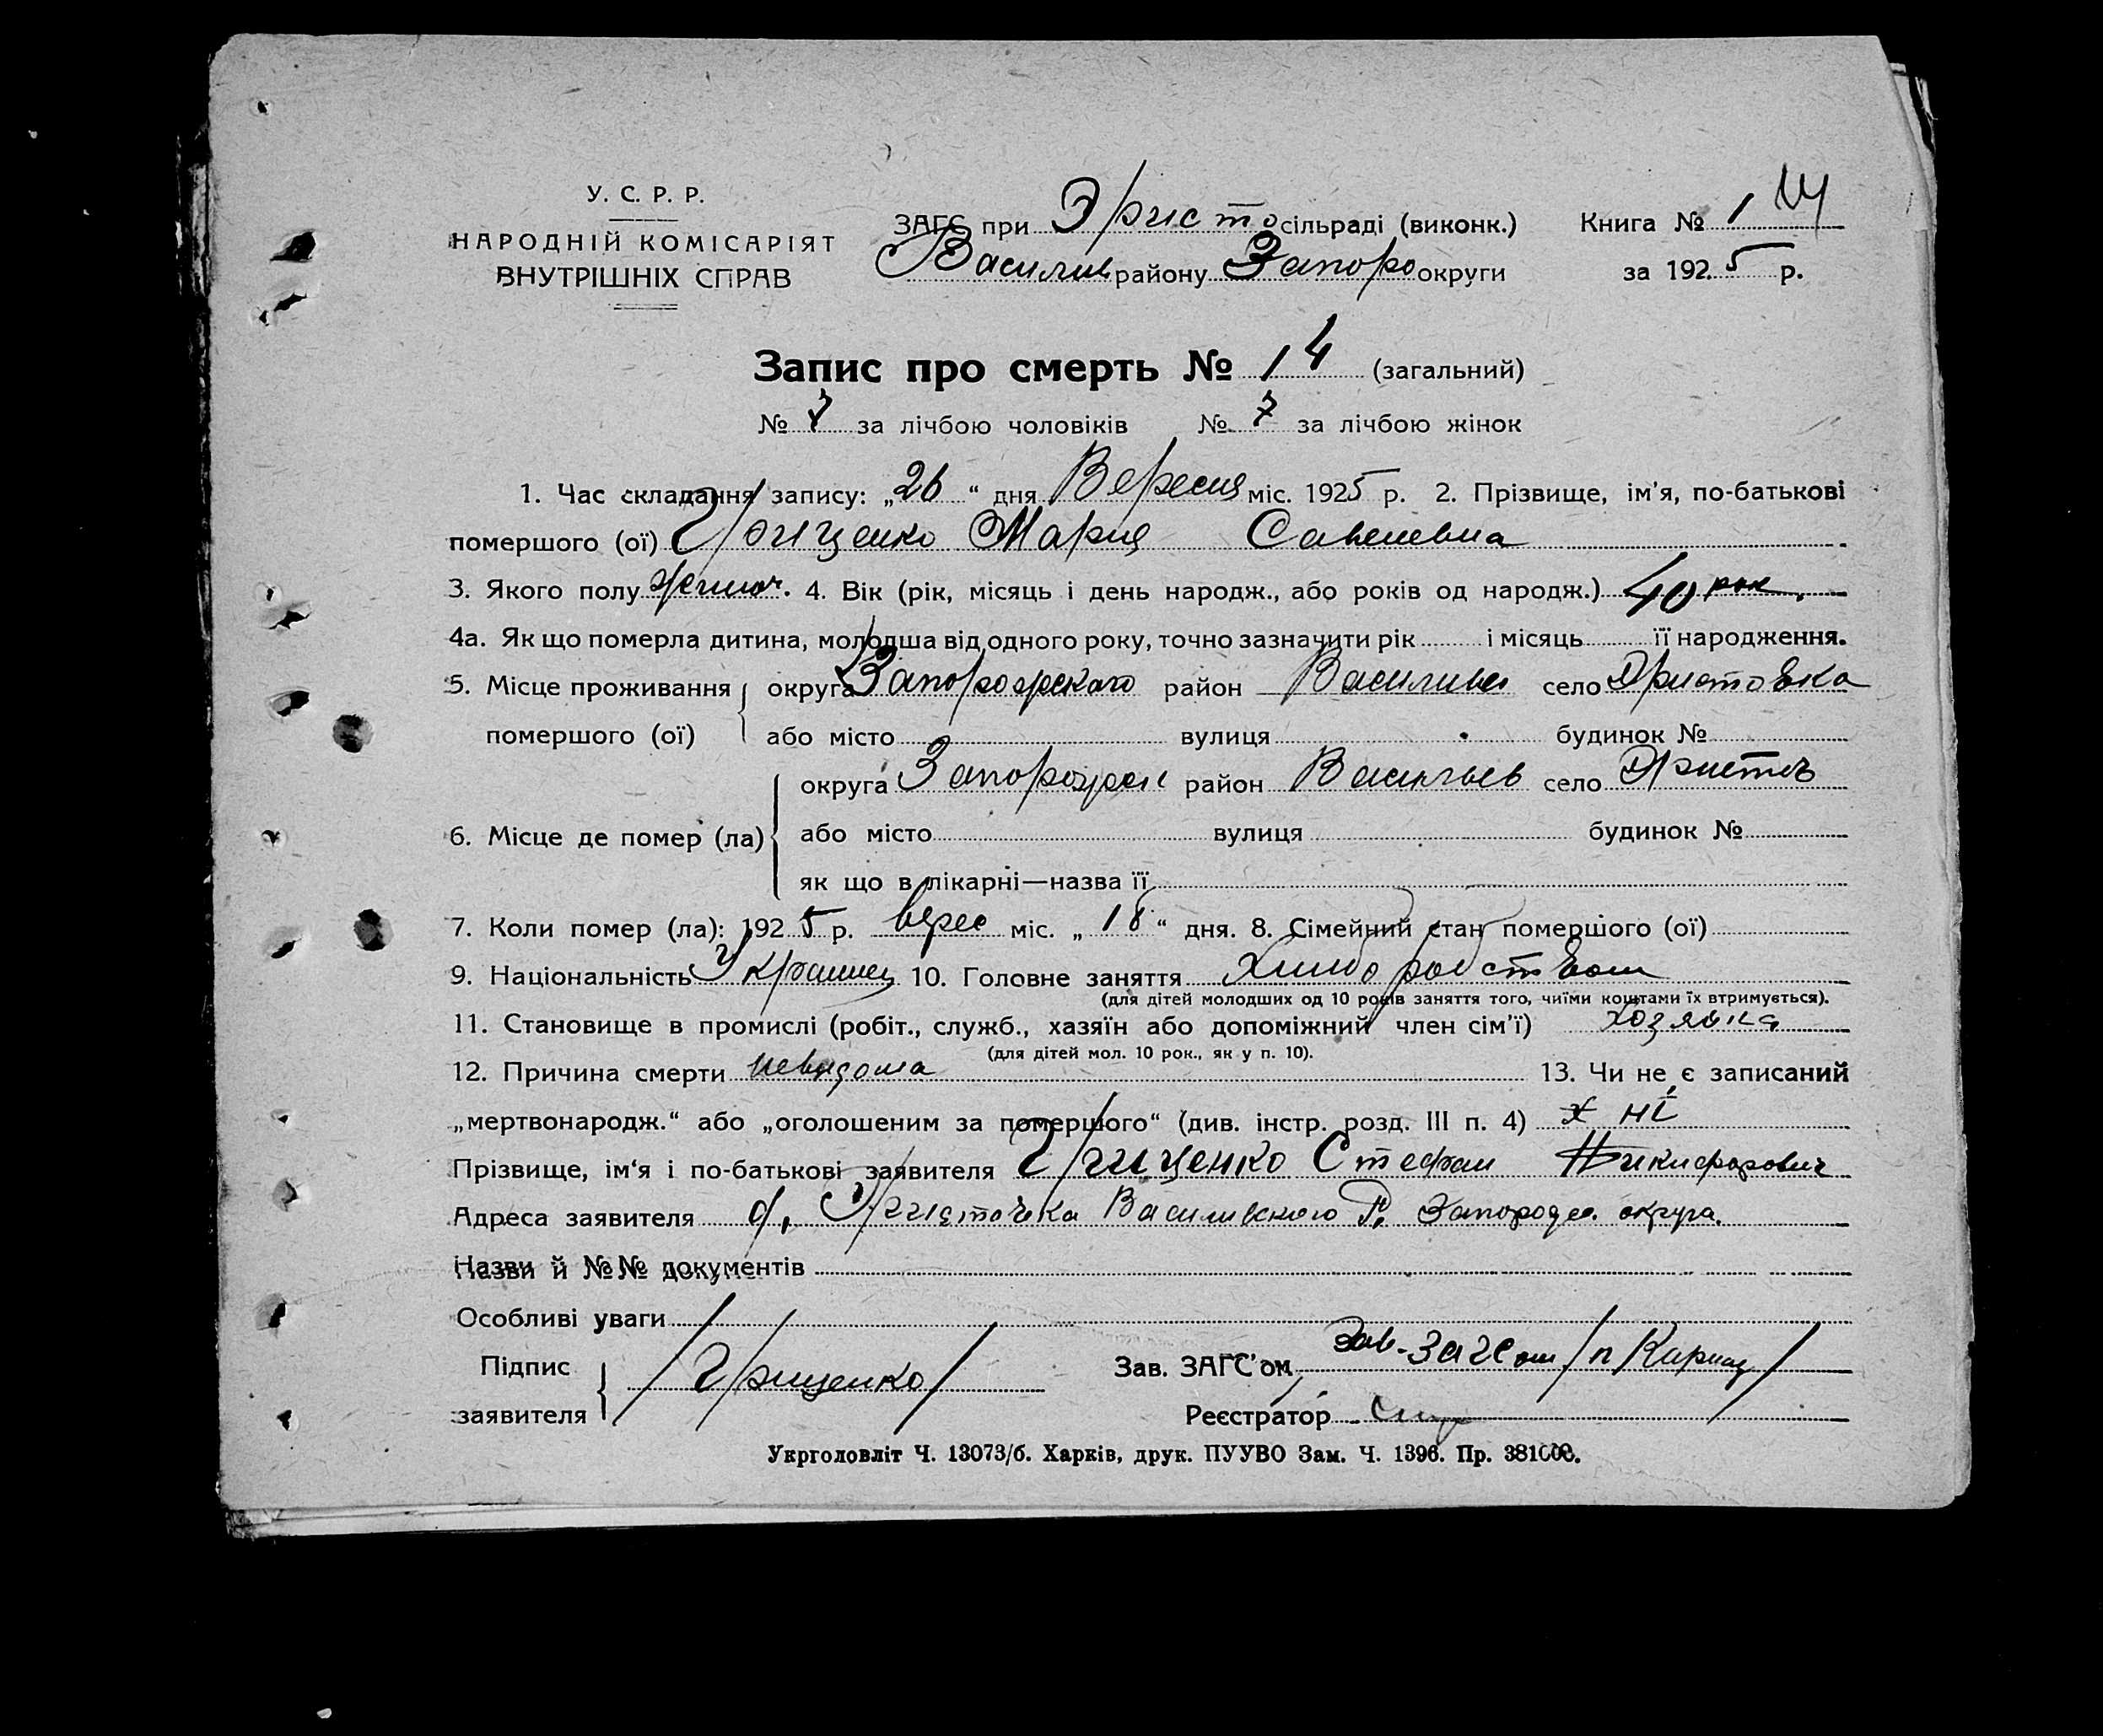 У. С. Р. Р.
НАРОДНІЙ КОМІСАРІЯТ
ВНУТРІШНІХ СПРАВ
ЗАГС при Эристо сільраді (виконк.) Книга № 1
Василив району Запоро округи за 1925 р.
Запис про смерть № 14 (загальний)
№ 7 за лічбою чоловіків № 7 за лічбою жінок
1. Час складання запису: „26“ дня Вересня міс. 1925 р. 2. Прізвище, ім'я, по-батькові
помершого (ої) Грищенко Мария Савелевна
3. Якого полу жиноч. 4. Вік (рік, місяць і день народж., або років од народж.) 40 рок.
4а. Як що померла дитина, молодша від одного року, точно зазначити рік і місяць її народження.
5. Місце проживання округа Запорожскаго район Василивс село Эристовка
помершого (ої) або місто вулиця будинок №
округа Запорожск район Васильев село Эристов
6. Місце де помер (ла) або місто вулиця будинок №
як що в лікарні—назва її
7. Коли помер (ла): 1925 р. верес міс. „18“ дня. 8. Сімейний стан помершого (ої)
9. Національність Украинец 10. Головне заняття Хлиборобством
(для дітей молодших од 10 років заняття того, чиїми коштами їх втримується).
11. Становище в промислі (робіт., служб., хазяїн або допоміжний член сім'ї) хозяика
(для дітей мол. 10 рок., як у п. 10).
12. Причина смерти невидома 13. Чи не є записаний
„мертвонародж.“ або „оголошеним за помершого“ (див. інстр. розд. III п. 4) х ні
Прізвище, ім‘я і по-батькові заявителя Грищенко Стефан Никифорович
Адреса заявителя с. Эристовка Василивского Р. Запорож. округа.
Назви й №№ документів
Особливі уваги
Підпис Зав. ЗАГС'ом Зав-загсом
/Грищенко/
заявителя Реєстратор
Укрголовліт Ч. 13073/б. Харків, друк. ПУУВО Зам. Ч. 1396. Пр. 381000.